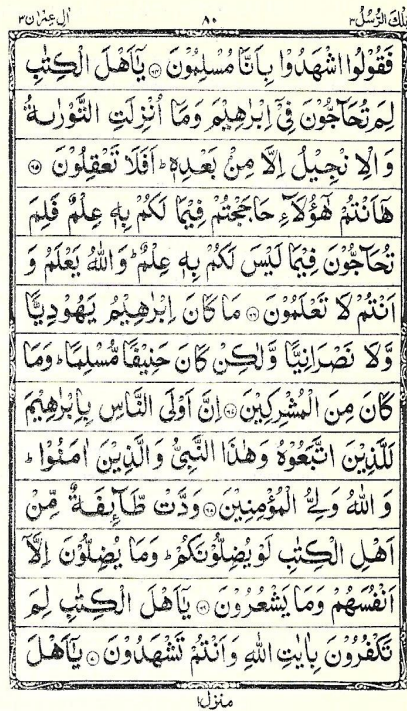 تِلْكَ الرُّسُلُ ٣ ٨٠ اٰلِ عِمْرٰن ٣
فَقُوْلُوا اشْهَدُوْا بِاَنَّا مُسْلِمُوْنَ ﴿٦٤﴾ يٰۤاَهْلَ الْكِتٰبِ
لِمَ تُحَآجُّوْنَ فِىْۤ اِبْرٰهِيْمَ وَمَاۤ اُنْزِلَتِ التَّوْرٰٮةُ
وَالْاِنْجِيْلُ اِلَّا مِنْۢ بَعْدِهٖؕ اَفَلَا تَعْقِلُوْنَ ﴿٦٥﴾
هٰۤاَنْتُمْ هٰٓؤُلَآءِ حَاجَجْتُمْ فِيْمَا لَكُمْ بِهٖ عِلْمٌ فَلِمَ
تُحَآجُّوْنَ فِيْمَا لَيْسَ لَكُمْ بِهٖ عِلْمٌؕ وَاللّٰهُ يَعْلَمُ وَ
اَنْتُمْ لَا تَعْلَمُوْنَ ﴿٦٦﴾ مَا كَانَ اِبْرٰهِيْمُ يَهُوْدِيًّا
وَّلَا نَصْرَانِيًّا وَّلٰكِنْ كَانَ حَنِيْفًا مُّسْلِمًاؕ وَمَا
كَانَ مِنَ الْمُشْرِكِيْنَ ﴿٦٧﴾ اِنَّ اَوْلَى النَّاسِ بِاِبْرٰهِيْمَ
لَلَّذِيْنَ اتَّبَعُوْهُ وَهٰذَا النَّبِىُّ وَالَّذِيْنَ اٰمَنُوْاؕ
وَاللّٰهُ وَلِىُّ الْمُؤْمِنِيْنَ ﴿٦٨﴾ وَدَّتْ طَّآٮِٕفَةٌ مِّنْ
اَهْلِ الْكِتٰبِ لَوْ يُضِلُّوْنَكُمْؕ وَمَا يُضِلُّوْنَ اِلَّاۤ
اَنْفُسَهُمْ وَمَا يَشْعُرُوْنَ ﴿٦٩﴾ يٰۤاَهْلَ الْكِتٰبِ لِمَ
تَكْفُرُوْنَ بِاٰيٰتِ اللّٰهِ وَاَنْتُمْ تَشْهَدُوْنَ ﴿٧٠﴾ يٰۤاَهْلَ
منزل ١